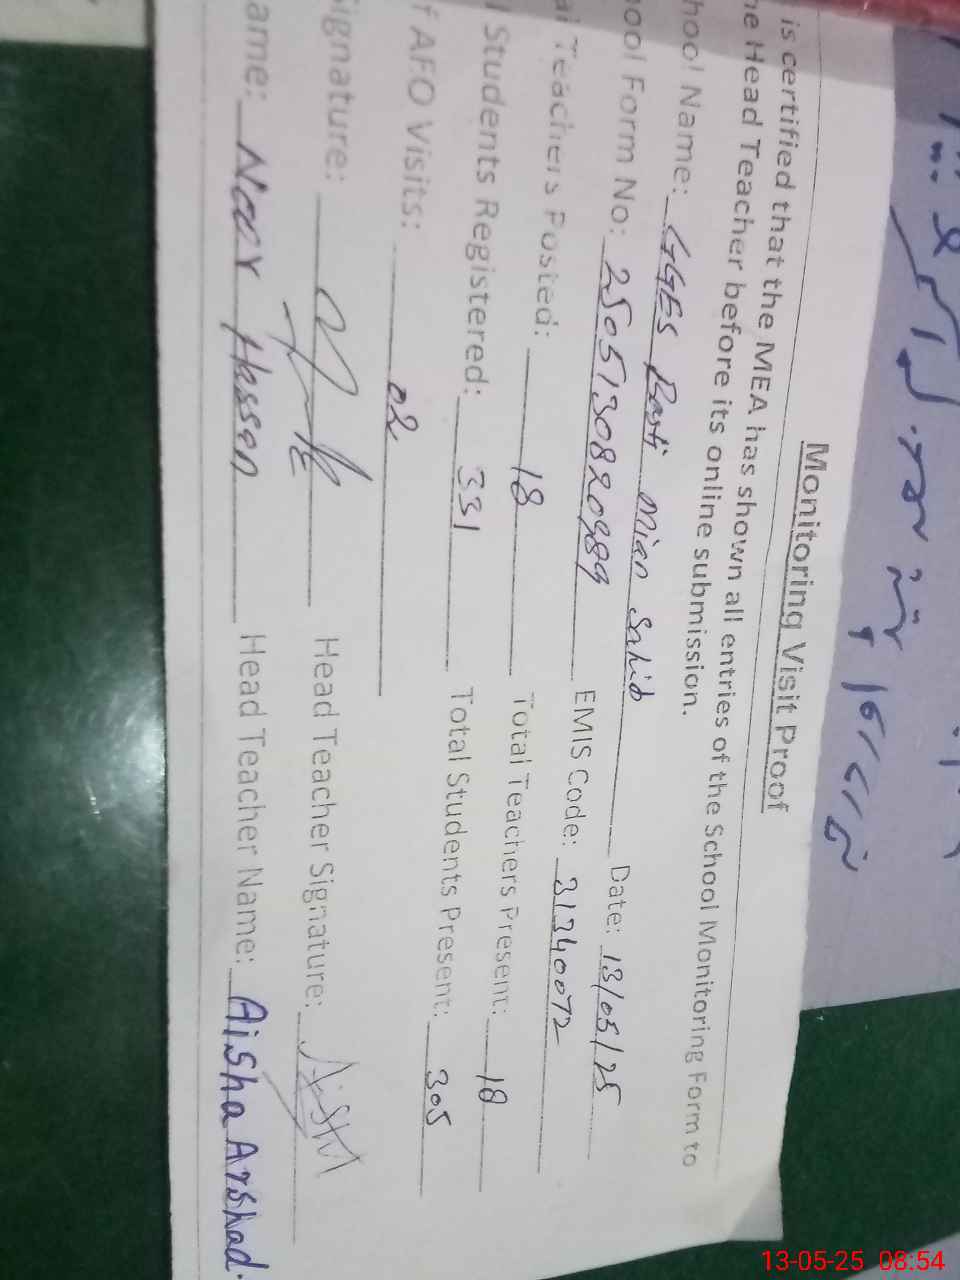 Monitoring Visit Proof
is certified that the MEA has shown all entries of the School Monitoring Form to
he Head Teacher before its online submission.
hool Name: GGES Basti Mian Sahib Date: 13/05/25
ool Form No: 2505130820989 EMIS Code: 31340072
al Teachers Posted: 18 Total Teachers Present: 18
l Students Registered: 331 Total Students Present: 305
f AFO Visits: 02
ignature: Head Teacher Signature:
ame: Noor Hassan Head Teacher Name: Aisha Arshad.
13-05-25 08:54